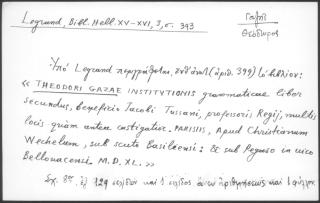 Legrand, Bibl. Hell. XV-XVI, 3, σ. 393
Γαζῆ
Θεόδωρος
Ὑπὸ Legrand περιγράφεται, (ἀριθ. 399) τὸ βιβλίον:
« THEODORI GAZAE INSTITUTIONIS grammaticae liber
secundus, beneficio Iacobi Tussani, professoris Regij, multis
locis quàm antea castigatior. PARISIIS, Apud Christianum
Wechelum, sub scuto Basiliensi: & sub Pegaso in vico
Bellouacensi M.D.XL. »
Σχ. 8ον 129 σελίδων καὶ 1 σελίδος ἄνευ ἀριθμήσεως καὶ 1 φύλλου